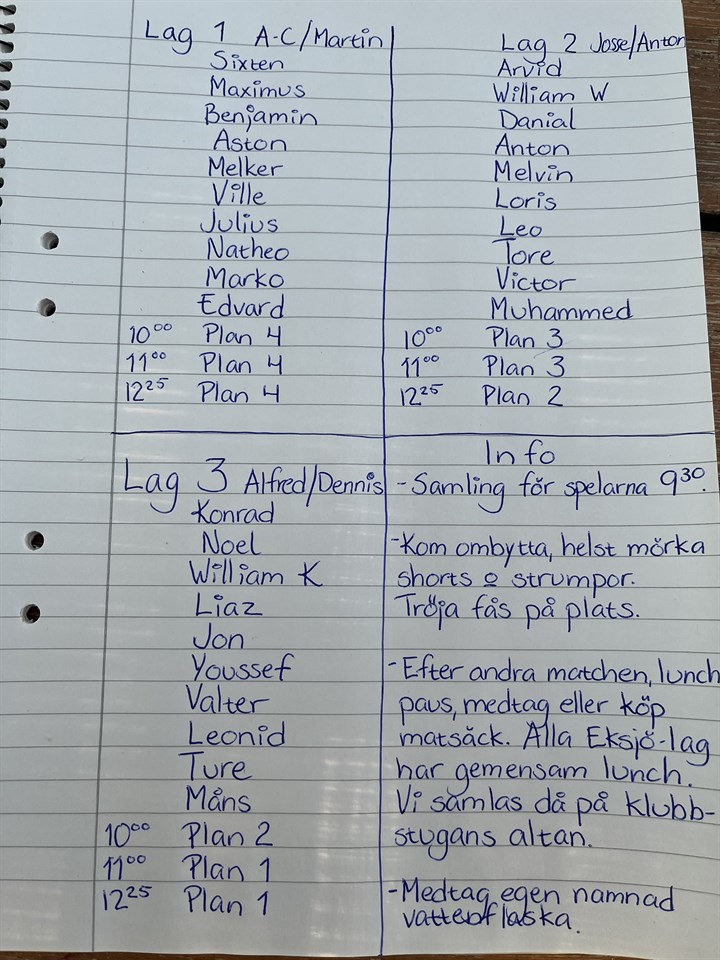 Lag 1 A-C/Martin
Sixten
Maximus
Benjamin
Aston
Melker
Ville
Julius
Natheo
Marko
Edvard
10⁰⁰ Plan 4
11⁰⁰ Plan 4
12²⁵ Plan 4
Lag 2 Josse/Anton
Arvid
William W
Danial
Anton
Melvin
Loris
Leo
Tore
Victor
Muhammed
10⁰⁰ Plan 3
11⁰⁰ Plan 3
12²⁵ Plan 2
Lag 3 Alfred/Dennis
Konrad
Noel
William K
Liaz
Jon
Youssef
Valter
Leonid
Ture
Måns
10⁰⁰ Plan 2
11⁰⁰ Plan 1
12²⁵ Plan 1
Info
-Samling för spelarna 9³⁰.
-Kom ombytta, helst mörka
shorts o strumpor.
Tröja fås på plats.
-Efter andra matchen, lunch
paus, medtag eller köp
matsäck. Alla Eksjö-lag
har gemensam lunch.
Vi samlas då på klubb-
stugans altan.
-Medtag egen namnad
vattenflaska.